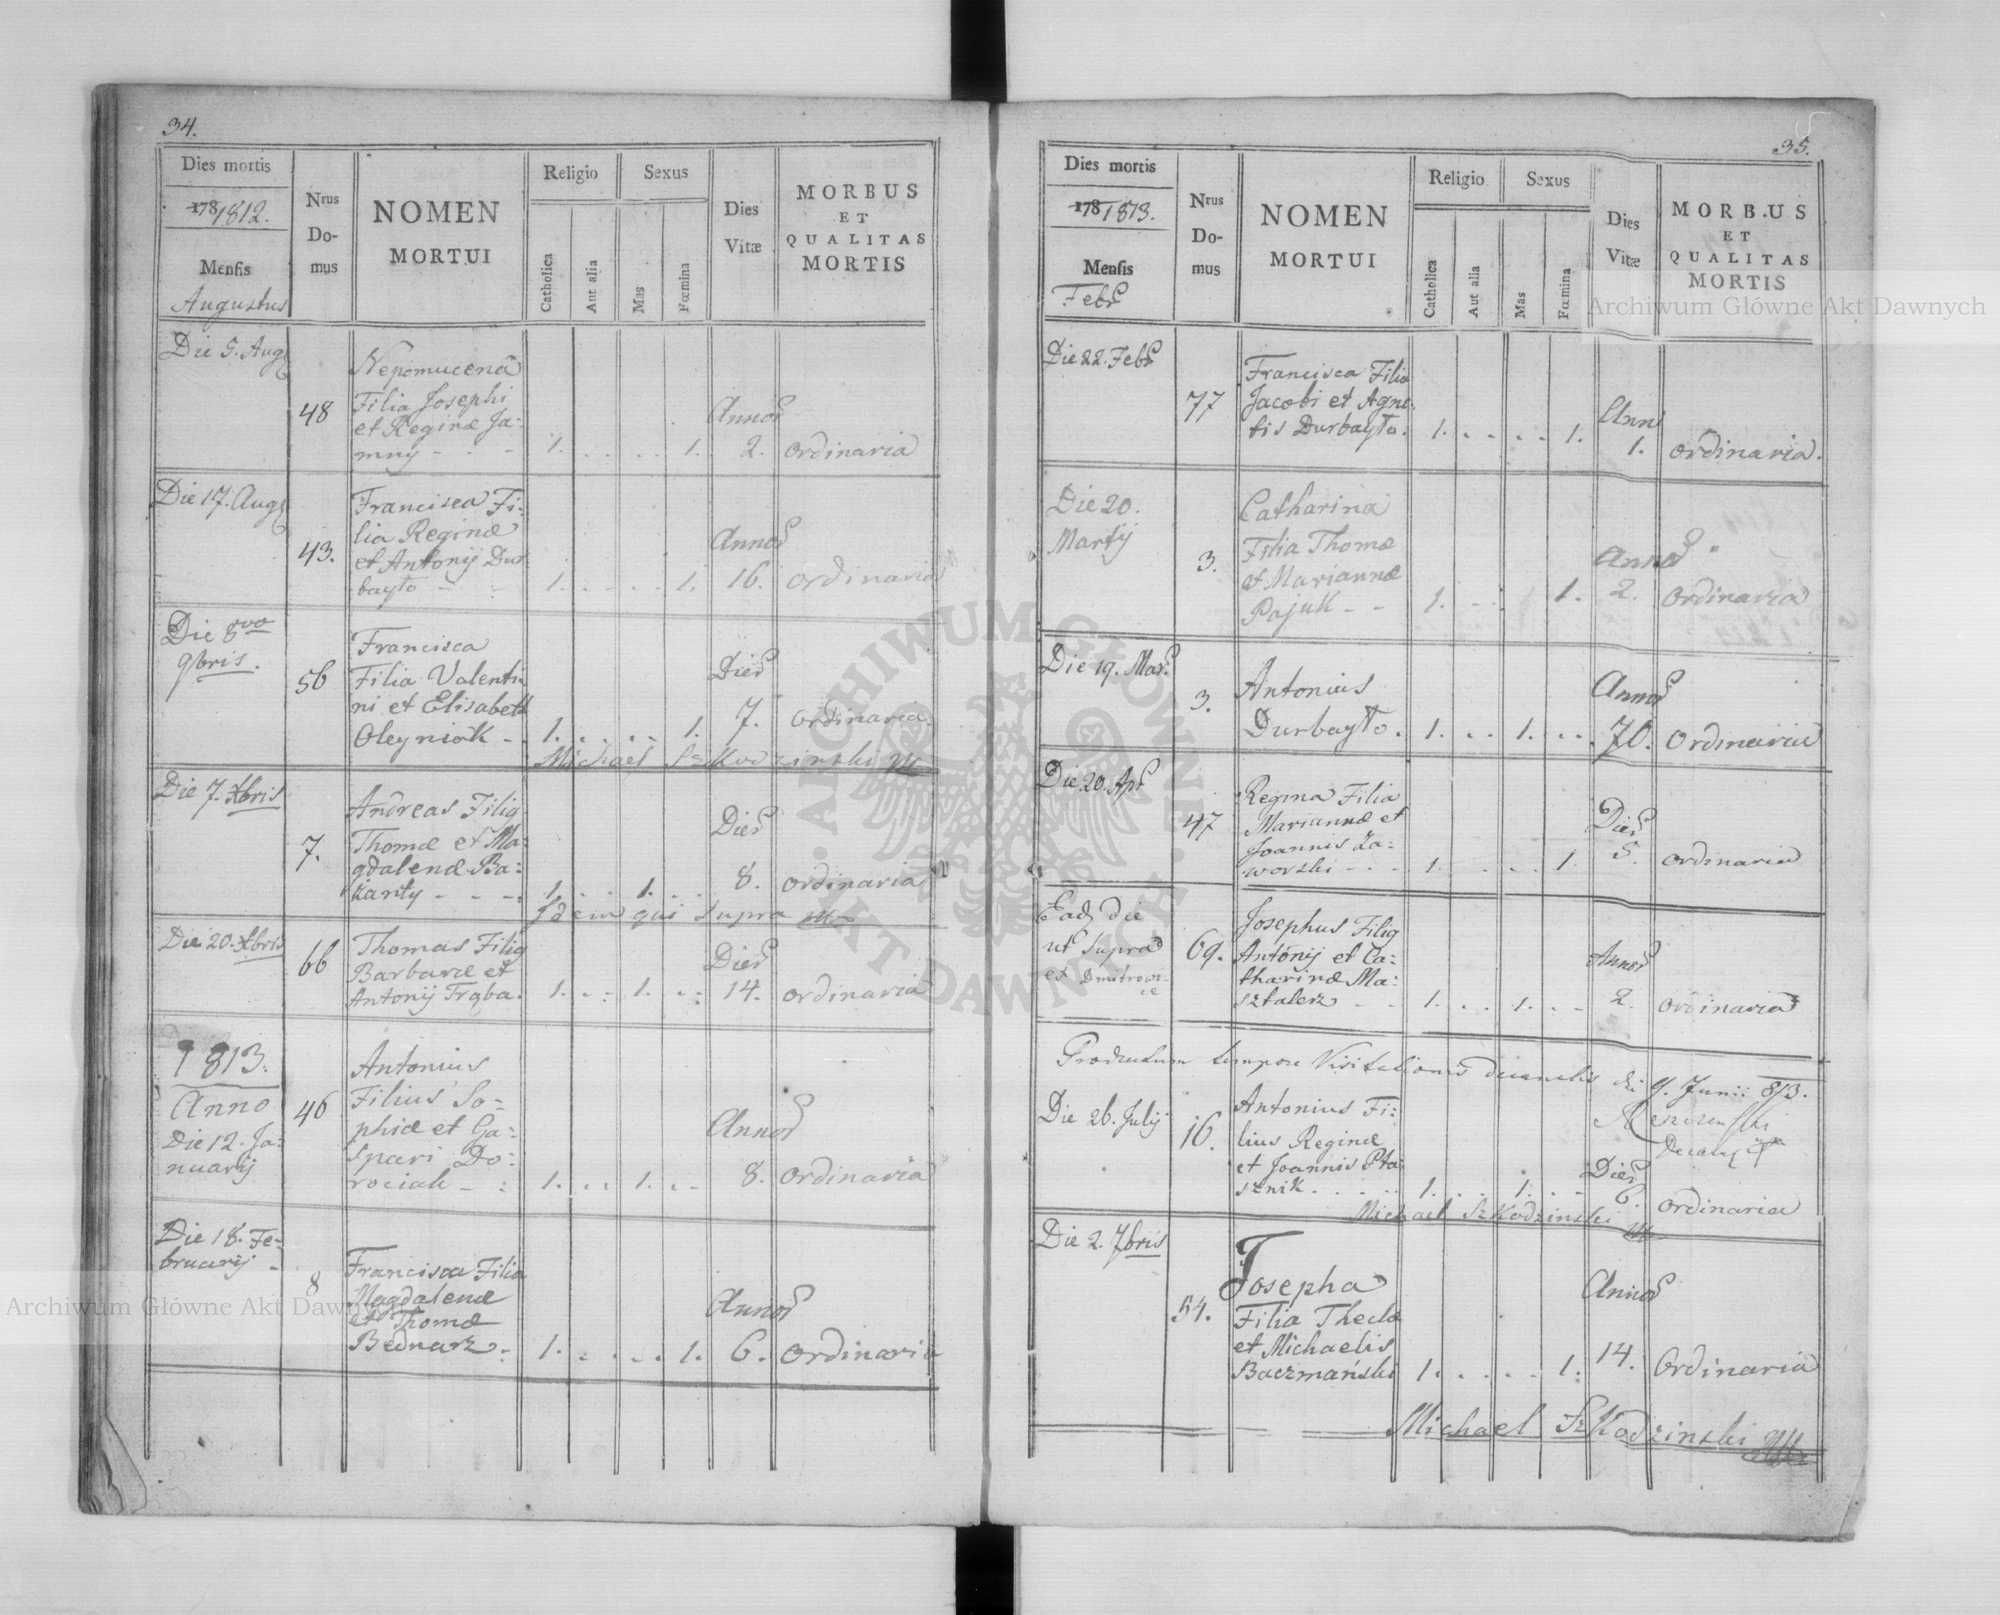 34.
Dies mortis
1781812.
Mensis
Augustus
Nrus
Do-
mus
NOMEN
MORTUI
Religio
Catholica
Aut alia
Sexus
Mas
Fœmina
Dies
Vitæ
MORBUS
ET
QUALITAS
MORTIS
Die 5. Aug
48
Nepomucena
Filia Josephi
et Reginæ Ja-
mny - - -
1. . . . . 1.
Annos
2.
ordinaria
Die 17. Aug
43.
Francisca Fi-
lia Reginæ
et Antonij Dur
bayło -
1. . . . . 1.
Annos
16.
ordinaria
Die 8vo
9bris.
56
Francisca
Filia Valenti-
ni et Elisabeth
Oleyniak - .
1. . . . . 1.
Dies
7.
ordinaria
Michael Szkodzinski
Die 7. Xbris
7.
Andreas Filiq
Thomæ et Ma-
gdalenæ Ba-
karity - - -
1. . . 1. . .
Dies
8.
ordinaria
Idem qui supra
Die 20. Xbris
66
Thomas Filiq
Barbaræ et
Antonij Trąba.
1. . . 1. . .
Dies
14.
ordinaria
1813.
Anno
Die 12. Ja-
nuarij
46
Antonius
Filius So-
phiæ et Ga-
spari Do-
rociak - :
1. . . 1. . .
Annos
8.
ordinaria
Die 18. Fe-
bruarij -
8
Francisca Filia
Magdalenæ
et Thomæ
Bednarz -
1. . . . . 1.
Annos
6.
ordinaria
35.
Dies mortis
1781813.
Mensis
Febr
Nrus
Do-
mus
NOMEN
MORTUI
Religio
Catholica
Aut alia
Sexus
Mas
Fœmina
Dies
Vitæ
MORBUS
ET
QUALITAS
MORTIS
Die 22. Febr
77
Francisca Filia
Jacobi et Agne-
tis Durbayło.
1. . . . . 1.
Anni
1.
ordinaria.
Die 20.
Martij
3.
Catharina
Filia Thomæ
et Mariannæ
Pajuk - -
1. . . 1.
Annos
2.
ordinaria
Die 19. Mar.
3.
Antonius
Durbayło.
1. . . 1. . . .
Annos
70.
ordinaria
Die 20. Apr
47
Regina Filia
Mariannæ et
Joannis Za-
worski - - -
1. . . . . 1.
Dies
5.
ordinaria
Ead die
ut supra
et Dmitrowi-
ce
69.
Josephus Filiq
Antonij et Ca-
tharinæ Ma-
sztalerz - -
1. . . 1. . .
Annos
2.
ordinaria
Productum tempore Visitationis decanalis die 9. Junii 813.
Die 26. Julij
16.
Antonius Fi-
lius Reginæ
et Joannis Pta-
sznik . . . .
1. . . 1. . .
Dies
6.
ordinaria
Michael Szkodzinski
Die 2. 7bris
54.
Josepha
Filia Theclæ
et Michaelis
Baczmański
1. . . . . 1.
Annos
14.
Ordinaria
Michael Szkodzinski
Archiwum Główne Akt Dawnych
Archiwum Główne Akt Dawnych
ARCHIWUM GŁÓWNE
AKT DAWNYCH